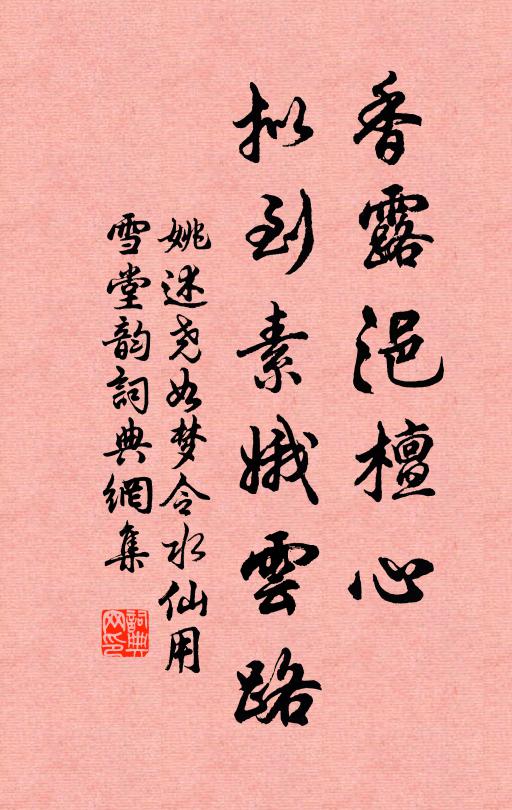 香露浥檀心
拟到素娥雲路
姚述尧如梦令水仙用
雪堂韵詞典網集
詞典网印